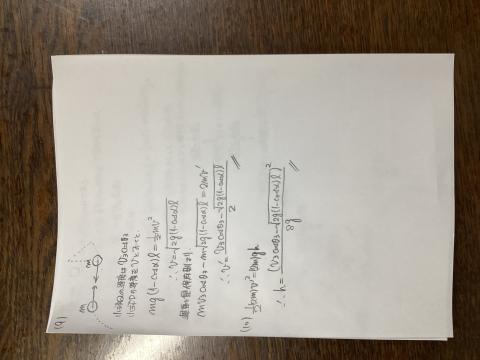 (9)
m
m
小球Qの速度は V₃cosθ₃
小球Dの速度をVとおくと、
mg(1-cosα)l = ½mv²
∴ v = √2g(1-cosα)l
運動量保存則より
mV₃cosθ₃ - m√2g(1-cosα)l = 2mv'
∴ v' = (V₃cosθ₃ - √2g(1-cosα)l) / 2
(10) ½(2m)v'² = 2mgh
∴ h = (V₃cosθ₃ - √2g(1-cosα)l)² / 8g